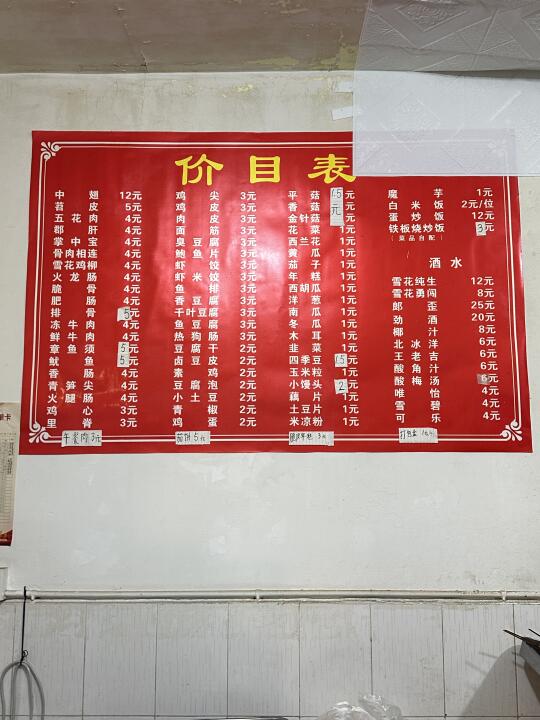 价目表
中翅 12元
苕皮 5元
五花肉 4元
郡肝 4元
掌中宝 4元
骨肉相连 4元
雪花鸡柳 4元
火龙肠 4元
脆骨 4元
肥肠 4元
排骨 5元
冻牛肉 4元
鲜牛肉 4元
章鱼须 5元
鱿鱼 5元
香肠 4元
青笋尖 4元
火腿肠 4元
鸡心 4元
里脊 4元
午餐肉 3元
鸡尖 3元
鸡皮 3元
肉皮 3元
面筋 3元
臭豆腐 3元
鲍鱼片 3元
虾饺 3元
虾米饺 3元
鱼排 3元
香豆腐 3元
千叶豆腐 3元
鱼豆腐 3元
热狗肠 3元
豆腐干 2元
卤豆皮 2元
素鸡 2元
豆腐泡 2元
小土豆 2元
青椒 2元
鸡蛋 2元
茄饼 5元
平菇 1.5元
香菇 元
金针菇 元
花菜 1元
西兰花 1元
黄瓜 1元
茄子 1元
年糕 1元
西胡瓜 1元
洋葱 1元
南瓜 1元
冬瓜 1元
木耳 1元
韭菜 1元
四季豆 1.5元
玉米粒 1元
小馒头 2元
藕片 1元
土豆片 1元
米凉粉 1元
3元
魔芋 1元
白米饭 2元/位
蛋炒饭 12元
铁板烧炒饭 3元
(菜品自配)
酒水
雪花纯生 12元
雪花勇闯 8元
郎歪 25元
劲酒 20元
椰汁 8元
北冰洋 6元
王老吉 6元
酸角汁 6元
酸梅汤 6元
唯怡 4元
雪碧 4元
可乐 4元
打包盒 1元